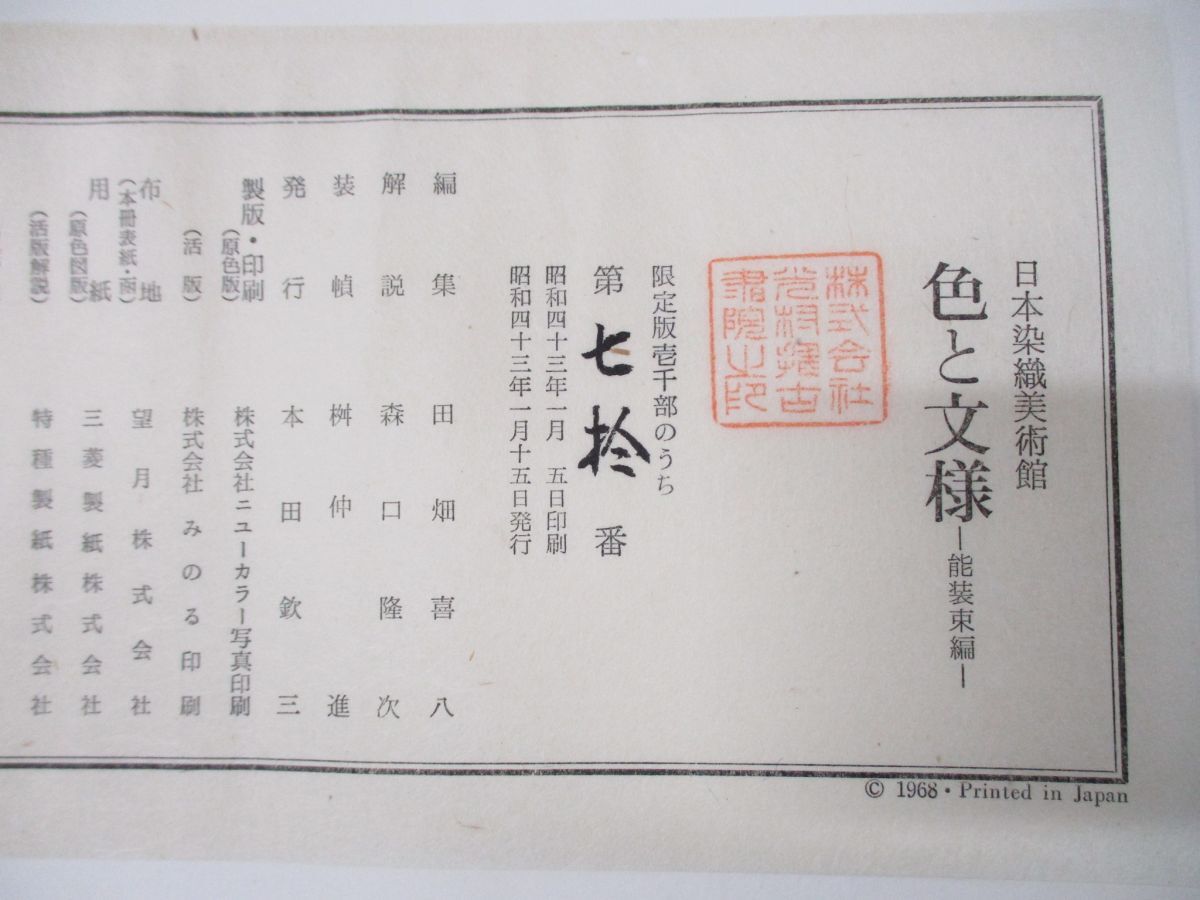 日本染織美術館
色と文様―能装束編―
株式会社
光村推古
書院之印
限定版壱千部のうち
第七拾番
昭和四十三年一月　五日印刷
昭和四十三年一月十五日発行
編集　田畑喜八
解説　森口隆次
装幀　桝仲進
発行　本田欽三
製版・印刷
（原色版）　株式会社ニューカラー写真印刷
（活版）　株式会社みのる印刷
布地
（本冊表紙・函）　望月株式会社
用紙
（原色図版）　三菱製紙株式会社
（活版解説）　特種製紙株式会社
© 1968・Printed in Japan